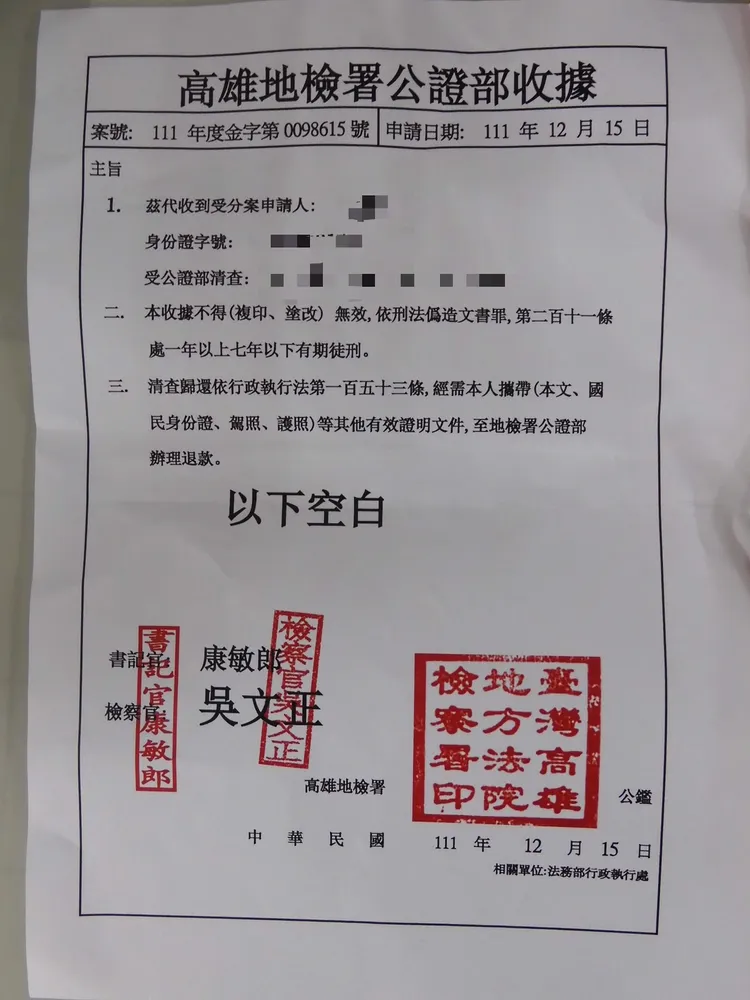 高雄地檢署公證部收據
案號: 111 年度金字第0098615號 申請日期: 111 年 12 月 15 日
主旨
1. 茲代收到受分案申請人:
身份證字號:
受公證部清查:
二. 本收據不得(複印、塗改) 無效,依刑法偽造文書罪,第二百十一條
處一年以上七年以下有期徒刑。
三. 清查歸還依行政執行法第一百五十三條,經需本人攜帶(本文、國
民身份證、駕照、護照)等其他有效證明文件,至地檢署公證部
辦理退款。
以下空白
書記官: 康敏郎
檢察官: 吳文正
書記官康敏郎
檢察官吳文正
臺灣高雄
地方法院
檢察署印
高雄地檢署 公鑑
中 華 民 國 111 年 12 月 15 日
相關單位:法務部行政執行處